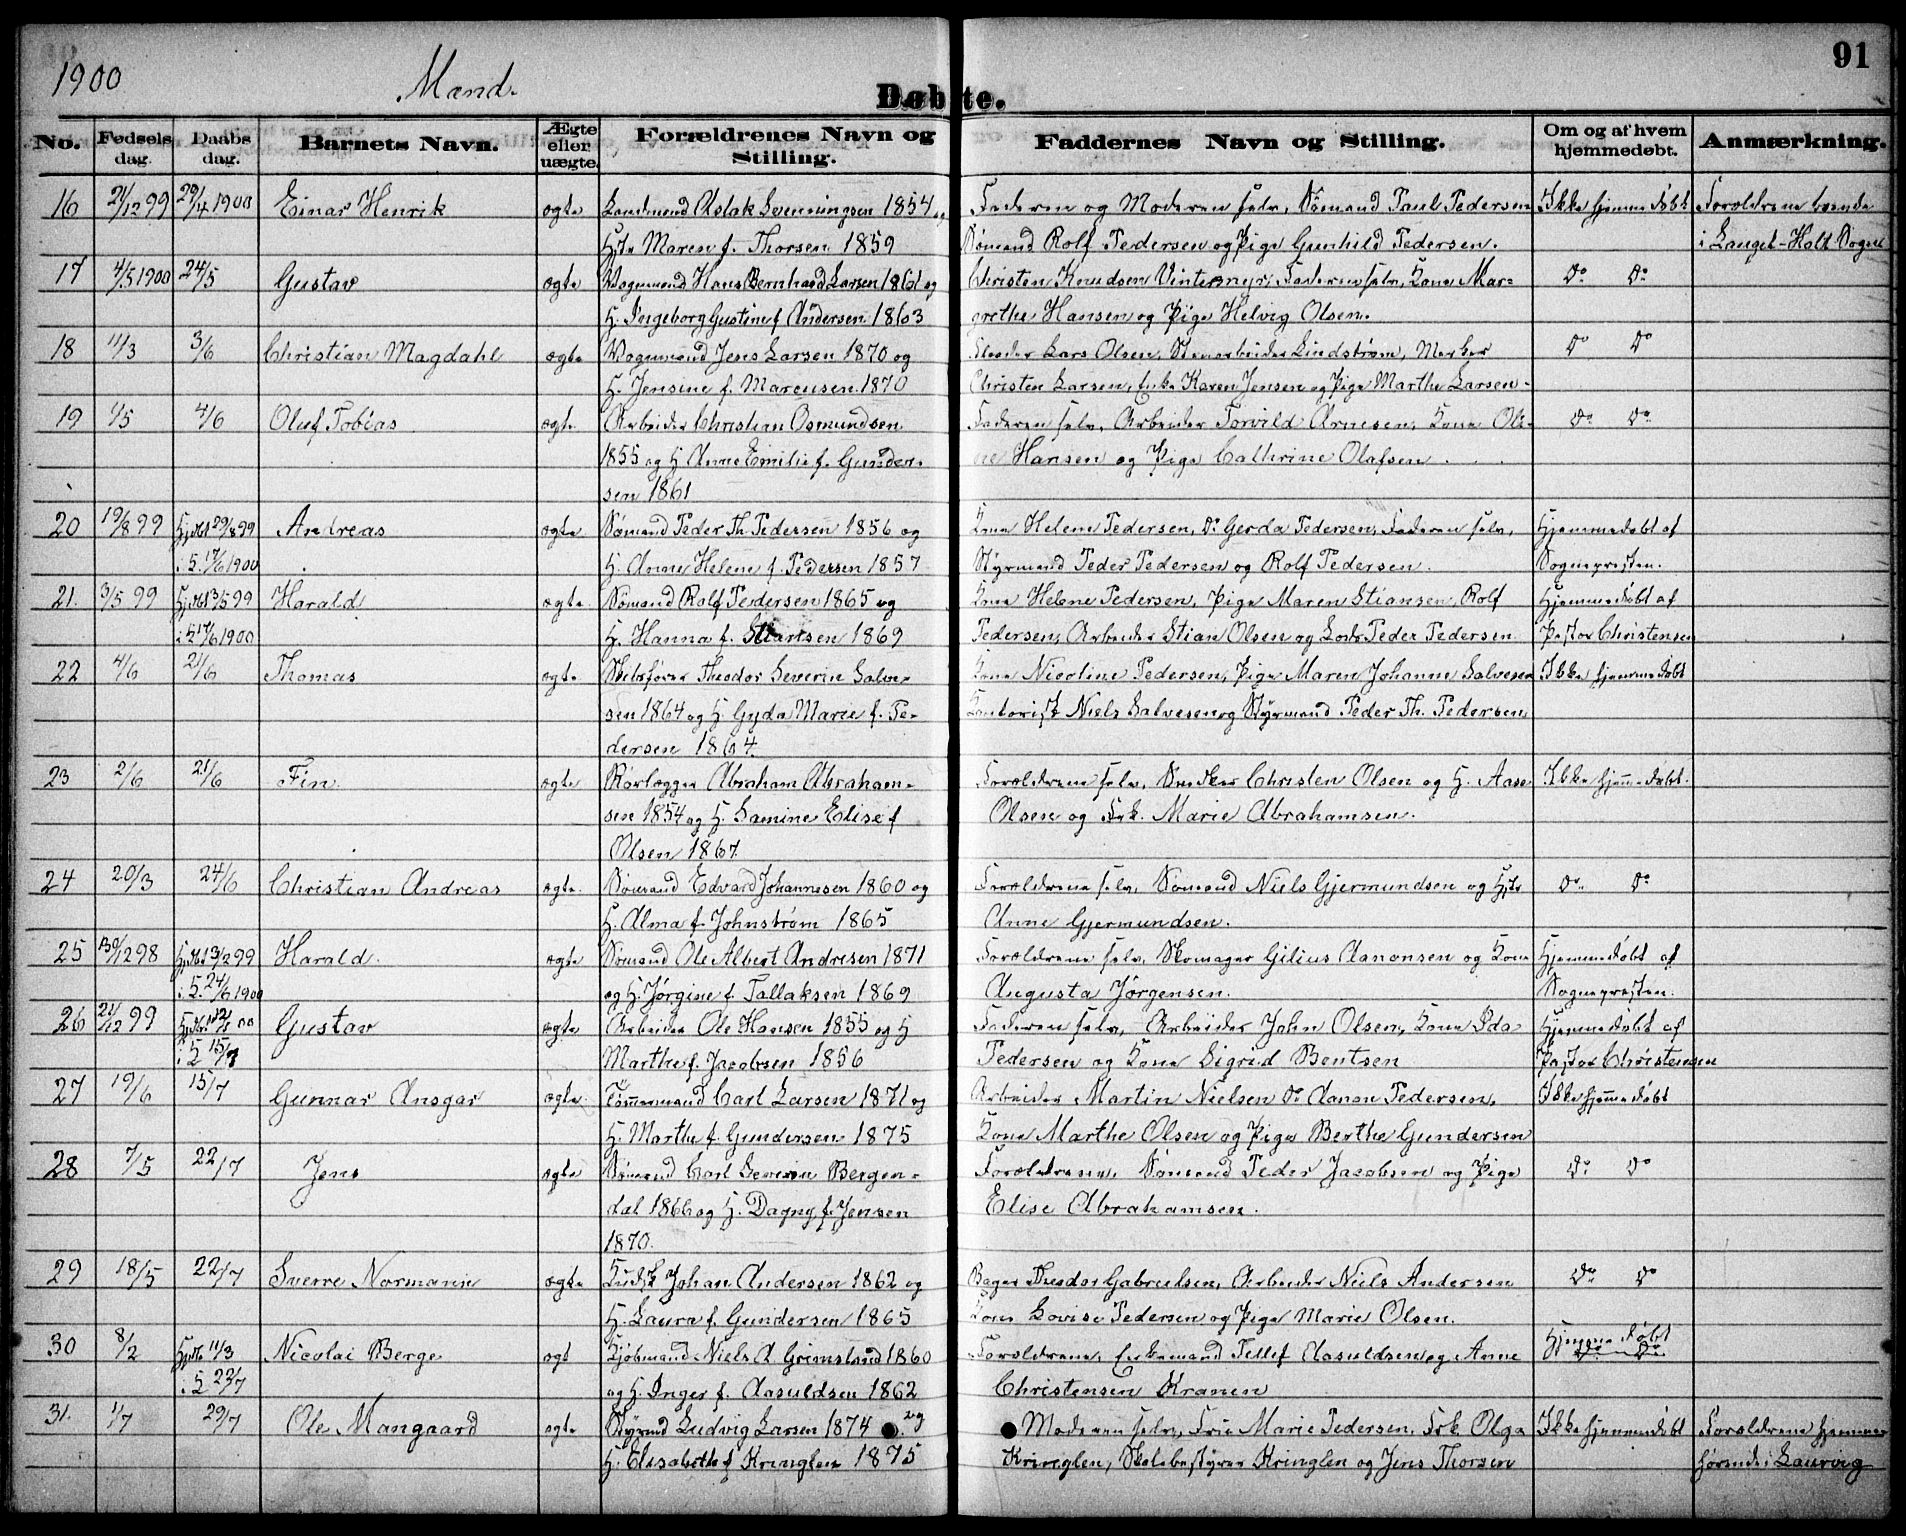 1900 Mand. Døbte. 91
No. Fødselsdag. Daabsdag. Barnets Navn. Ægte eller uægte. Forældrenes Navn og Stilling. Faddernes Navn og Stilling. Om og af hvem hjemmedøbt. Anmærkning.
16 21/12 99 29/4 1900 Einar Henrik ægte Landmand Aslak Svenningsen 1854 og Faderen og Moderen selv, Sømand Paul Pedersen Ikke hjemmedøbt Forældrene boende
Hst. Maren f. Thorsen 1859 Sømand Rolf Pedersen og Pige Gunhild Pedersen. i Langet-Holt Sogn
17 4/5 1900 24/5 Gustav ægte Vognmand Hans Bernhard Larsen 1861 og Christen Knudsen Vintermyr, Faderen selv, Kone Mar- Do Do
H. Ingeborg Gustine f. Andersen 1863 grethe Hansen og Pige Helvig Olsen.
18 11/3 3/6 Christian Magdahl ægte Vognmand Jens Larsen 1870 og Lars Olsen, Stenarbeider Lindstrøm, Do Do
H. Jensine f. Marcusen 1870 Christen Larsen, Enke Karen Jensen og Pige Marthe Larsen
19 1/5 4/6 Oluf Tobias ægte Arbeider Christian Osmundsen Faderen selv, Arbeider Torvild Arnesen, Kone Ole- Do Do
1855 og H. Anne Emilie f. Gunder- ne Hansen og Pige Cathrine Olafsen.
sen 1861
20 19/8 99 Hjdbt 29/8 99 Andreas ægte Sømand Peder Th. Pedersen 1856 og Kone Helene Pedersen, Do Gerda Pedersen, Faderen selv, Hjemmedøbt af
i S. 17/6 1900 H. Anne Helene f. Pedersen 1857 Styrmand Peder Pedersen og Rolf Pedersen. Sognepresten.
21. 3/5 99 Hjdbt 3/5 99 Harald ægte Sømand Rolf Pedersen 1865 og Kone Helene Pedersen, Pige Maren Stiansen, Rolf Hjemmedøbt af
i S 17/6 1900 H. Hanna f. 1869 Pedersen, Arbeider Stian Olsen og Lods Peder Pedersen Pastor Christensen
22 4/6 21/6 Thomas ægte Skibsfører Theodor Severin Salve- Kone Nicoline Pedersen, Pige Maren Johanne Salvesen Ikke hjemmedøbt
sen 1864 og H. Gyda Marie f. Pe- Kontorist Niels Salvesen og Styrmand Peder Th. Pedersen
dersen 1864
23 2/6 21/6 Fin ægte Rørlægger Abraham Abraham- Forældrene selv, Snedker Christen Olsen og H. Aase Ikke hjemmedøbt.
sen 1854 og H. Samine Elise f Olsen og Frk. Marie Abrahamsen.
Olsen 1867.
24 20/3 24/6 Christian Andreas ægte Sømand Edvard Johannesen 1860 og Forældrene selv, Sømand Niels Gjermundsen og Hst. Do Do
H. Alma f. Johnstrøm 1865 Anne Gjermundsen.
25 30/12 98 Harald ægte Sømand Ole Albert Andresen 1871 Forældrene selv, Skomager Gilius Aanonsen og Kone Hjemmedøbt af
i S. 24/6 1900 og H. Jørgine f. Tallaksen 1869 Augusta Jørgensen. Sognepresten.
26 21/12 99 Gustav ægte Arbeider Ole Hansen 1855 og H Faderen selv, Arbeider John Olsen, Kone Ida Hjemmedøbt af
i S 15/7 Marthe f. Jacobsen 1856 Pedersen og Kone Sigrid Bentsen Pastor Christensen
27 19/6 15/7 Gunnar Ansgar ægte Tømmermand Carl Larsen 1871 og Arbeider Martin Nielsen Do Aanon Pedersen, Ikke hjemmedøbt
H. Marthe f. Gundersen 1875 Kone Marthe Olsen og Pige Berthe Gundersen
28 7/5 22/7 Jens ægte Sømand Carl Severin Bergen- Forældrene, Sømand Peder Jacobsen og Pige Do Do
dal 1866 og H. Dagny f. Jensen Elise Abrahamsen.
1870.
29 18/5 22/7 Sverre Normann ægte Johan Andersen 1862 og Bager Theodor Gabrielsen, Arbeider Niels Andersen Do Do
H. Laura f. Gundersen 1865 Kone Lovise Pedersen og Pige Marie Olsen.
30 8/2 Hjdb 11/3 Nicolai Berge ægt Kjøbmand Niels A Grimsland 1860 Forældrene, Tellef Aasuldsen og Anne Hjemmedøbt
i S 22/7 og H. Inger f. Aasuldsen 1862 Christensen Kranen Do Do
31. 1/7 29/7 Ole Mangaard ægte Styrmd Ludvig Larsen 1874 og Moderen selv, Fru Marie Pedersen, Frk Olga Ikke hjemmedøbt Forældrene hjemme-
H. Elisabeth f Kringlen 1875 Kringlen, Skolebestyrer Kringlen og Jens Thorsen hørende i Laurvig